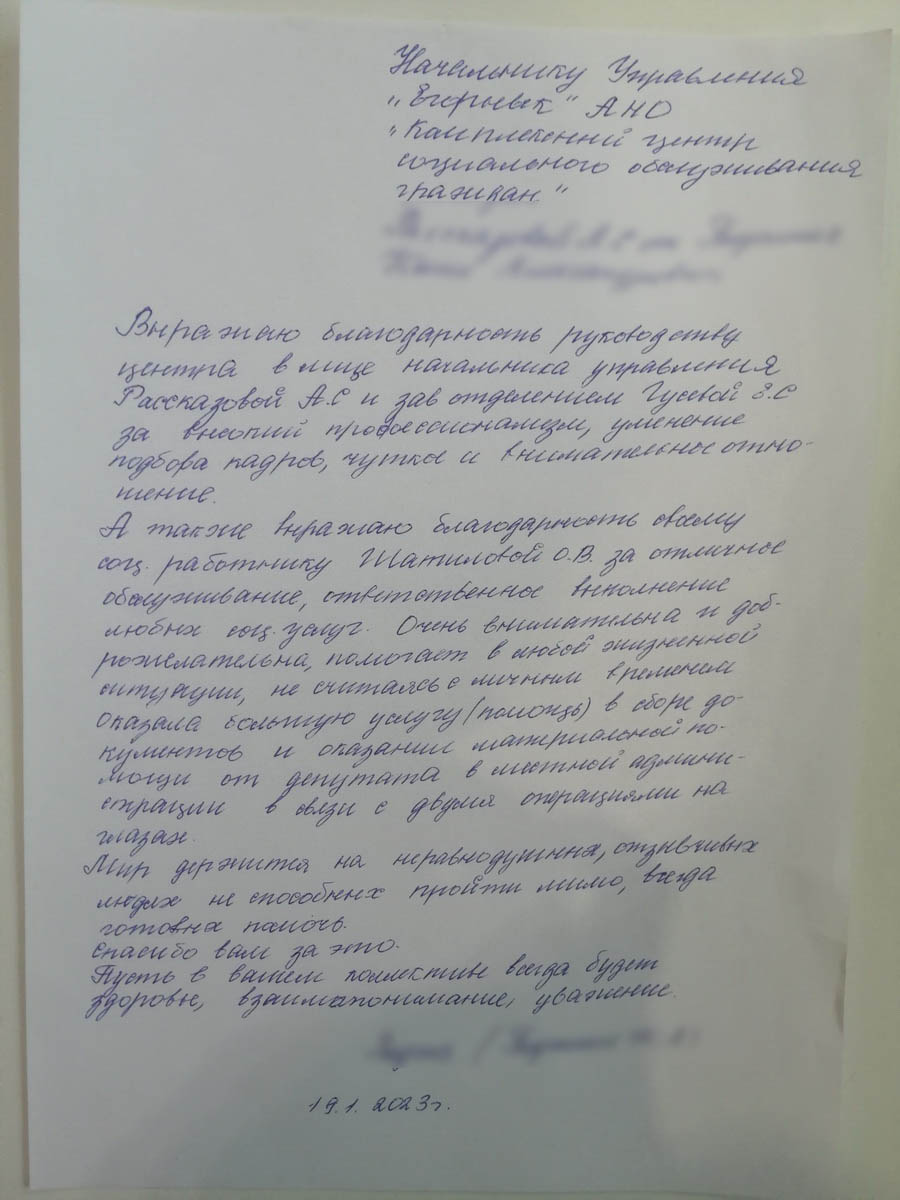 Начальнику Управления
„Егорьевск" АНО
„Комплексный центр
социального обслуживания
граждан."
Выражаю благодарность руководству
центра в лице начальника управления
Рассказовой А.С и зав отделением Гусевой Е.С
за высокий профессионализм, умение
подбора кадров, чуткое и внимательное отно-
шение.
А также выражаю благодарность своему
соц. работнику Шатиловой О.В. за отличное
обслуживание, ответственное выполнение
любых соц. услуг. Очень внимательна и доб-
рожелательна, помогает в любой жизненной
ситуации, не считаясь с личным временем
оказала большую услугу (помощь) в сборе до-
кументов и оказании материальной по-
мощи от депутата в местной админи-
страции в связи с двумя операциями на
глазах.
Мир держится на неравнодушных, отзывчивых
людях не способных пройти мимо, всегда
готовых помочь.
Спасибо вам за это.
Пусть в вашем коллективе всегда будет
здоровье, взаимопонимание, уважение.
19.1. 2023г.